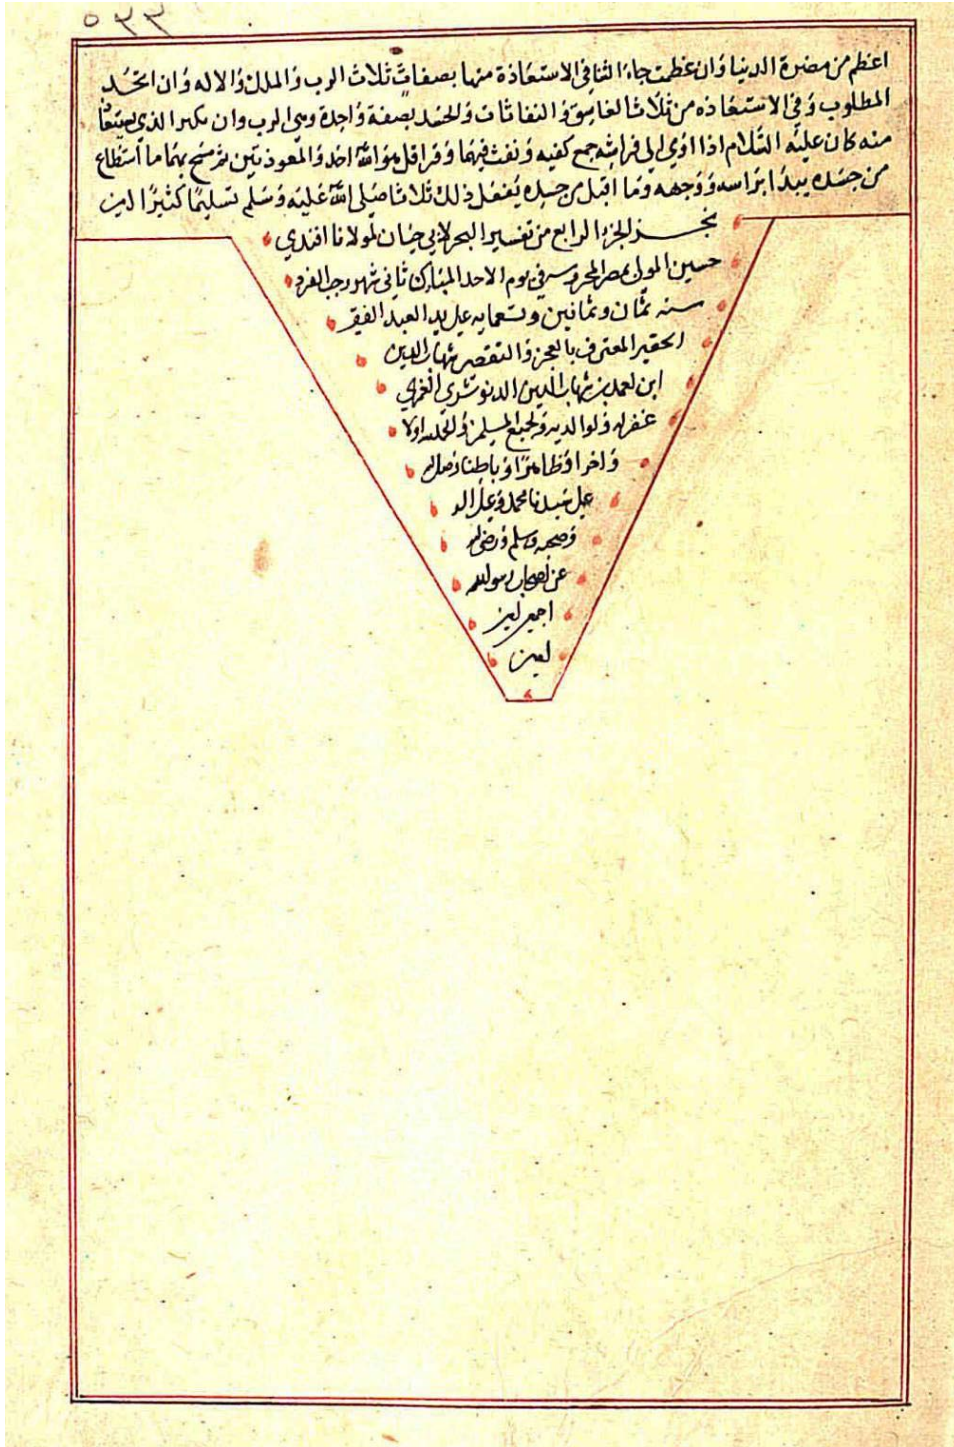 ٥٣٣
اعظم من مضرة الدنيا وان عظمت جاء الثنا في الاستعاذة منها بصفات ثلاث الرب والملك والاله وان اتحد
المطلوب وفي الاستعاذه من ثلاث الغاسق والنفاثات والحسد بصفة واحدة وهي الرب وان تكثر الذي يستعاذ
منه كان عليه السلام اذا اوي الي فراشه جمع كفيه ونفث فيهما وقرا قل هو الله احد والمعوذتين ثم مسح بهما ما استطاع
من جسده يبدا براسه ووجهه وما اقبل من جسده يفعل ذلك ثلاثا صلي الله عليه وسلم تسليما كثيرا الدين
نجز الجزء الرابع من تفسير البحر لابي حيان لمولانا افندي
حسين المولي بمصر المحروسه في يوم الاحد المبارك ثاني شهر رجب الفرد
سنه ثمان وثمانين وتسعمايه علي يد العبد الفقير
الحقير المعترف بالعجز والتقصير شهاب الدين
ابن احمد بن شهاب الدين الدنوشري الغمري
غفر له ولوالديه ولجميع المسلمين والحمد لله اولا
واخرا وظاهرا وباطنا وصلي الله
علي سيدنا محمد وعلي اله
وصحبه وسلم ورضي الله
عن اصحاب رسول الله
اجمعين امين
امين